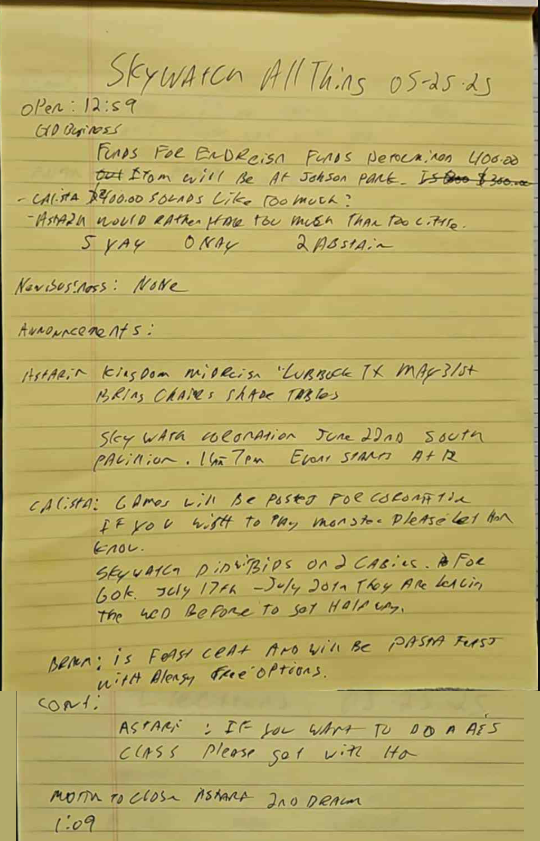 SkyWatch AllThing 05-25-25
Open: 12:59
Old Business
Funds For EndReign Funds Determined 400.00
but Itom will Be At Johson Park.
- Calista $400.00 sounds Like too much?
- Astaza would Rather Have too much Than too Little.
5 YAY 0 NAY 2 ABSTAIN
New Business: None
Announcements:
Astari Kingdom MidReign "Lubbock TX MAY 31st
Bring Chairs Shade Tables
Sky Watch Coronation June 22nd South
Pavillion. 7pm Event starts At 12
Calista: Games will Be Posted For Coronation
If you wish to Play monster Please Let Her
Know.
Skywatch Did Bids on 2 Cabins. For
GoK. July 17th - July 20th They Are
The WED Before to get Half way.
is Feast Crat And will Be PASTA Feast
with Alergy Free Options.
Cont:
Astari : If you want to Do A A&S
CLASS Please get with Her
Motion to Close Astara 2nd
1:09